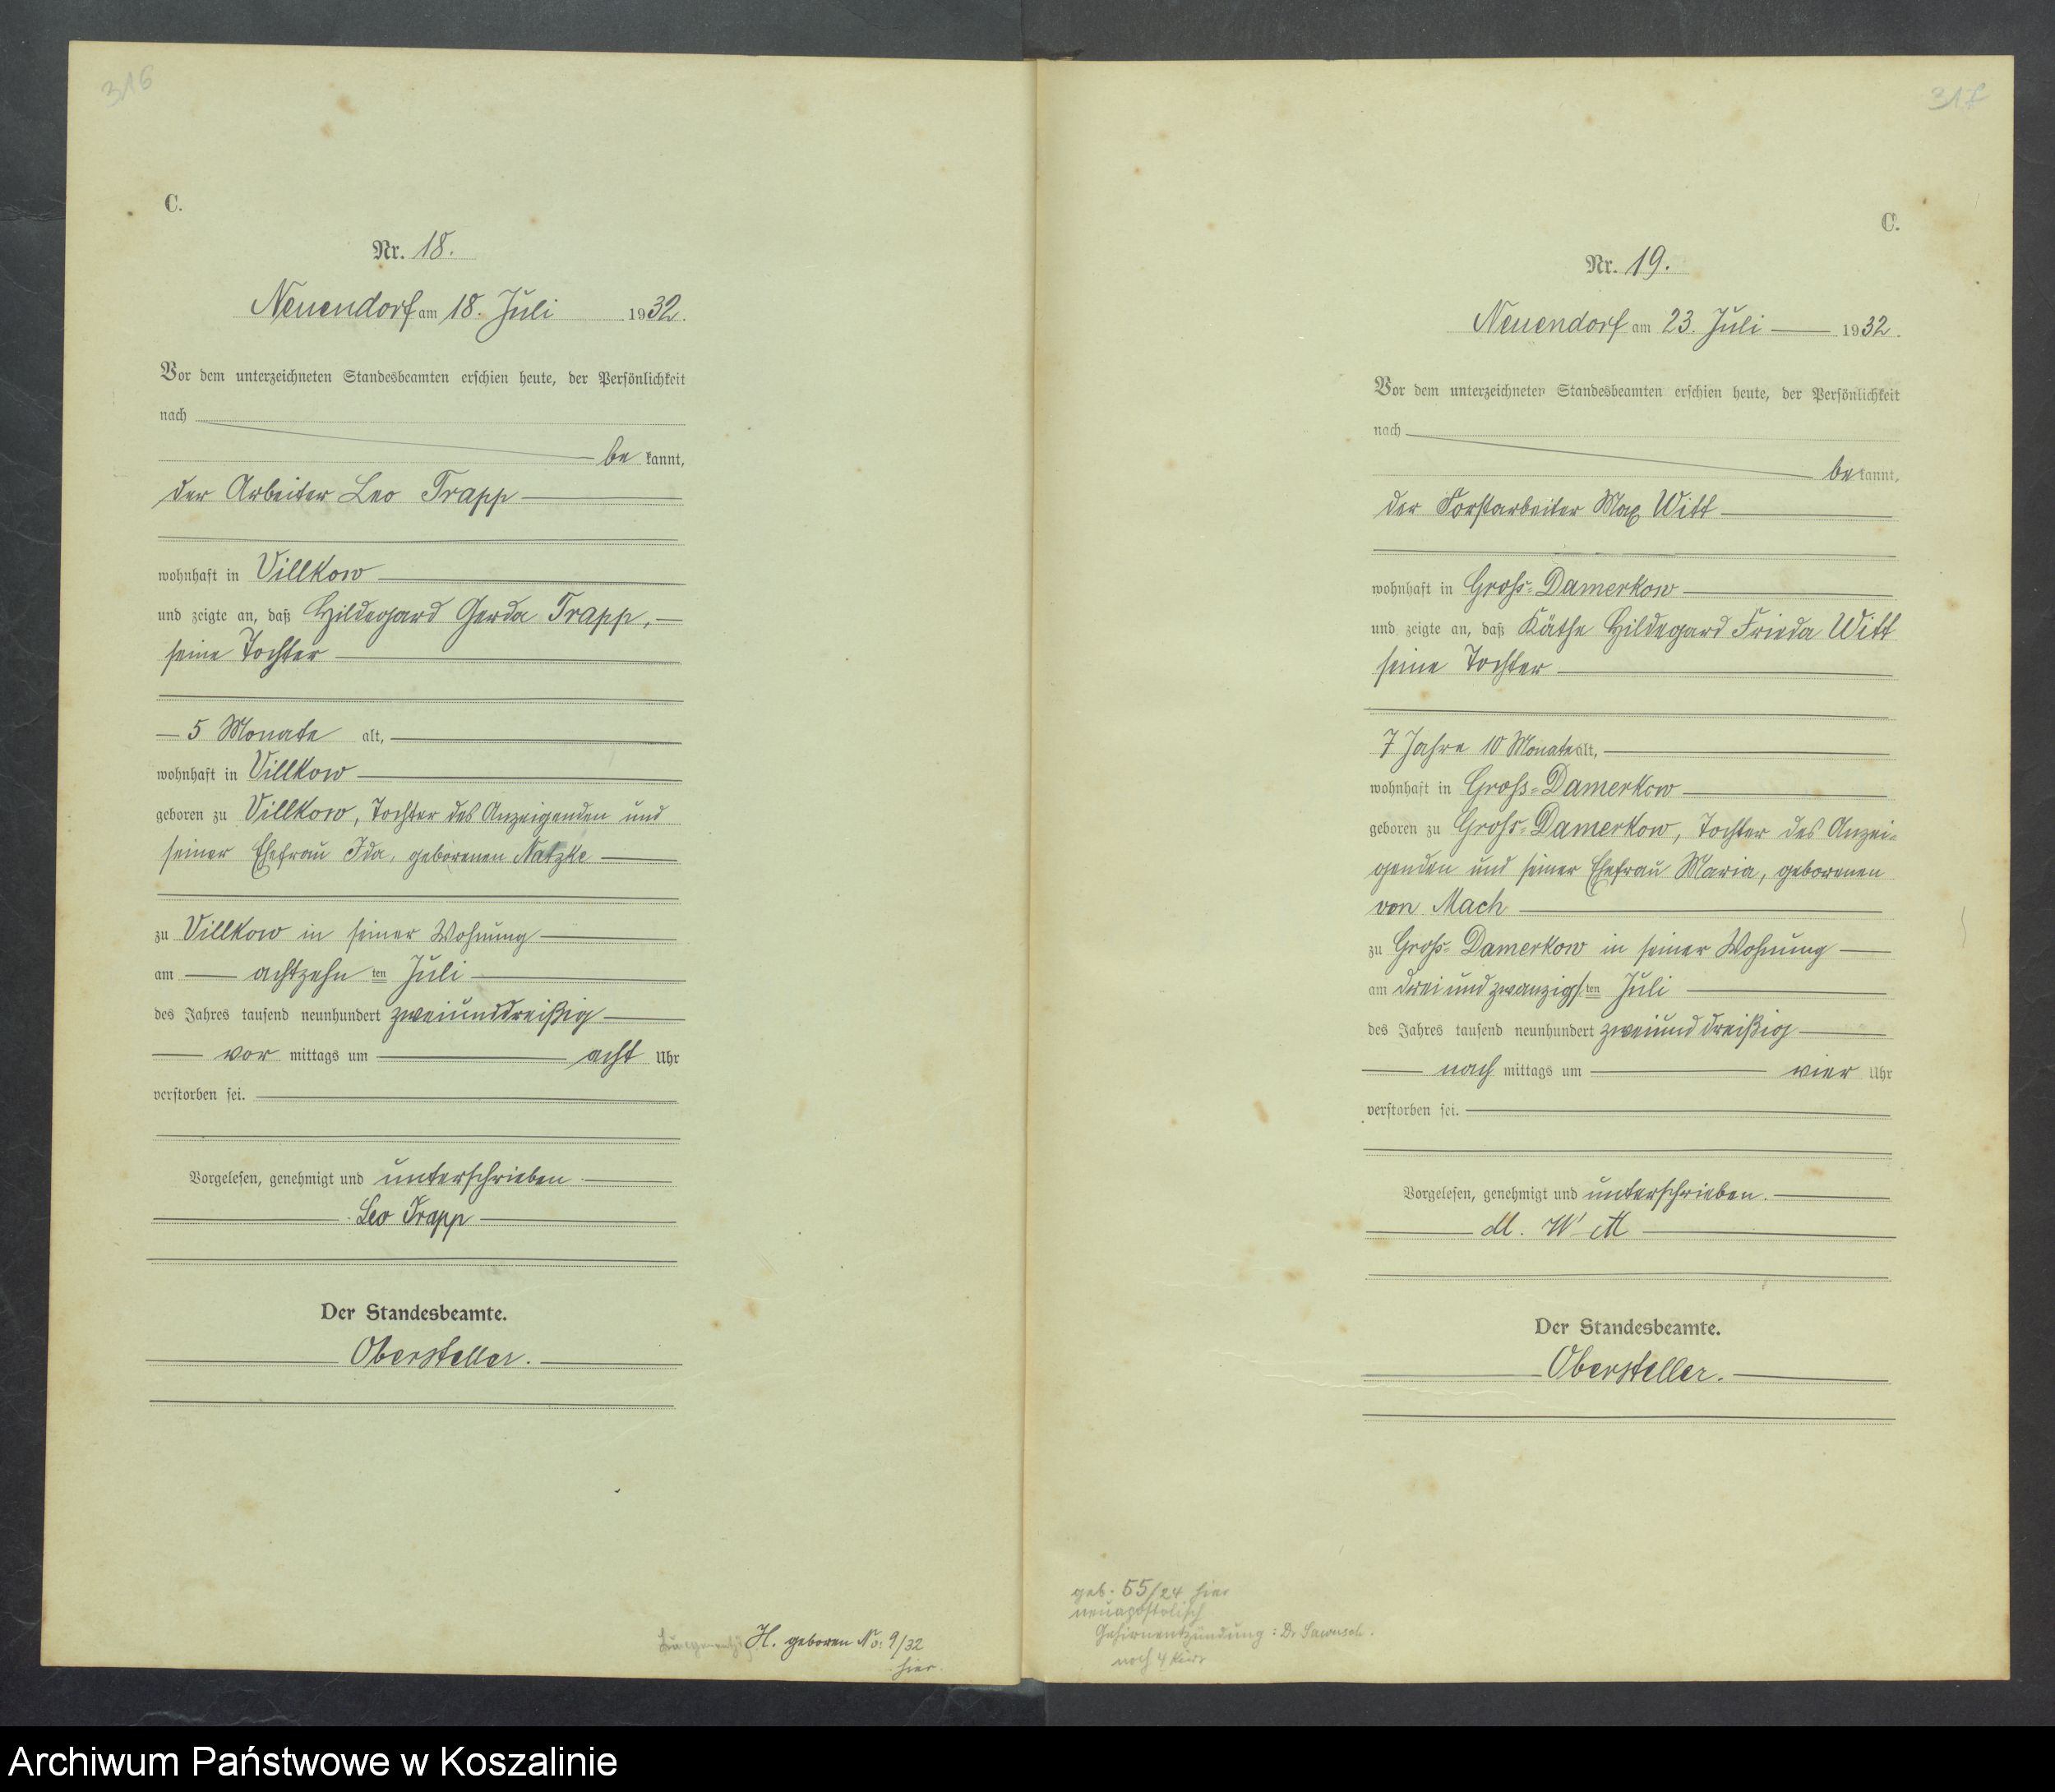 316
C.
Nr. 18.
Neuendorf am 18. Juli 1932.
Vor dem unterzeichneten Standesbeamten erschien heute, der Persönlichkeit
nach
be kannt,
der Arbeiter Leo Trapp
wohnhaft in Villkow
und zeigte an, daß Hildegard Gerda Trapp,
seine Tochter
5 Monate alt,
wohnhaft in Villkow
geboren zu Villkow, Tochter des Anzeigenden und
seiner Ehefrau Ida, geborenen Natzke
zu Villkow in seiner Wohnung
am achtzehn ten Juli
des Jahres tausend neunhundert zweiunddreißig
vor mittags um acht Uhr
verstorben sei.
Vorgelesen, genehmigt und unterschrieben
Leo Trapp
Der Standesbeamte.
Obersteller.
H. geboren No: 9/32
hier.
317
C.
Nr. 19.
Neuendorf am 23. Juli 1932.
Vor dem unterzeichneten Standesbeamten erschien heute, der Persönlichkeit
nach
be kannt,
der Forstarbeiter Max Witt
wohnhaft in Groß-Damerkow
und zeigte an, daß Käthe Hildegard Frieda Witt
seine Tochter
7 Jahre 10 Monate alt,
wohnhaft in Gross-Damerkow
geboren zu Groß-Damerkow, Tochter des Anzei-
genden und seiner Ehefrau Maria, geborenen
von Mach
zu Groß-Damerkow in seiner Wohnung
am dreiundzwanzigs ten Juli
des Jahres tausend neunhundert zweiunddreißig
nach mittags um vier Uhr
verstorben sei.
Vorgelesen, genehmigt und unterschrieben.
M. Witt
Der Standesbeamte.
Obersteller.
geb. 55/24 hier
neuapostolisch
Gehirnentzündung: Dr
noch 4 Kind
Archiwum Państwowe w Koszalinie